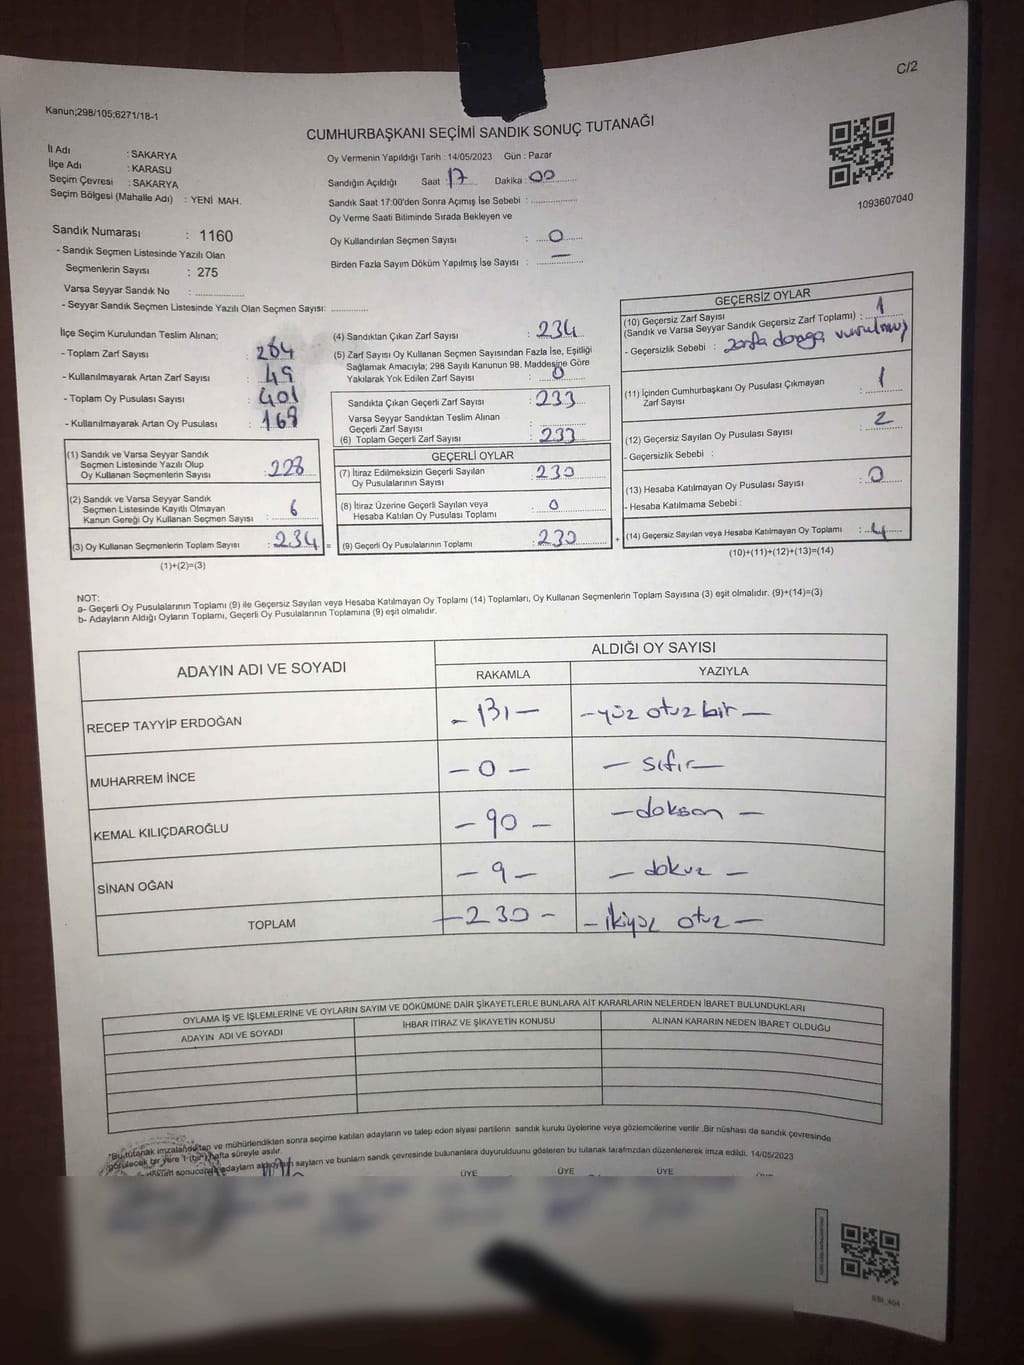 C/2
Kanun;298/105;6271/18-1
CUMHURBAŞKANI SEÇİMİ SANDIK SONUÇ TUTANAĞI
İl Adı : SAKARYA
İlçe Adı : KARASU
Seçim Çevresi : SAKARYA
Seçim Bölgesi (Mahalle Adı) : YENİ MAH.
Oy Vermenin Yapıldığı Tarih : 14/05/2023 Gün : Pazar
Sandığın Açıldığı Saat : 17 Dakika : 00
Sandık Saat 17:00'den Sonra Açımış İse Sebebi :
Oy Verme Saati Bitiminde Sırada Bekleyen ve
Oy Kullandırılan Seçmen Sayısı : 0
Birden Fazla Sayım Döküm Yapılmış İse Sayısı : —
1093607040
Sandık Numarası : 1160
- Sandık Seçmen Listesinde Yazılı Olan
Seçmenlerin Sayısı : 275
Varsa Seyyar Sandık No :
- Seyyar Sandık Seçmen Listesinde Yazılı Olan Seçmen Sayısı:
İlçe Seçim Kurulundan Teslim Alınan;
- Toplam Zarf Sayısı : 284
- Kullanılmayarak Artan Zarf Sayısı : 49
- Toplam Oy Pusulası Sayısı : 401
- Kullanılmayarak Artan Oy Pusulası : 168
(1) Sandık ve Varsa Seyyar Sandık
Seçmen Listesinde Yazılı Olup
Oy Kullanan Seçmenlerin Sayısı : 228
(2) Sandık ve Varsa Seyyar Sandık
Seçmen Listesinde Kayıtlı Olmayan
Kanun Gereği Oy Kullanan Seçmen Sayısı : 6
(3) Oy Kullanan Seçmenlerin Toplam Sayısı : 234 =
(1)+(2)=(3)
(4) Sandıktan Çıkan Zarf Sayısı : 234
(5) Zarf Sayısı Oy Kullanan Seçmen Sayısından Fazla İse, Eşitliği
Sağlamak Amacıyla; 298 Sayılı Kanunun 98. Maddesine Göre
Yakılarak Yok Edilen Zarf Sayısı : 0
Sandıkta Çıkan Geçerli Zarf Sayısı : 233
Varsa Seyyar Sandıktan Teslim Alınan
Geçerli Zarf Sayısı :
(6) Toplam Geçerli Zarf Sayısı : 233
GEÇERLİ OYLAR
(7) İtiraz Edilmeksizin Geçerli Sayılan
Oy Pusulalarının Sayısı : 230
(8) İtiraz Üzerine Geçerli Sayılan veya
Hesaba Katılan Oy Pusulası Toplamı : 0
(9) Geçerli Oy Pusulalarının Toplamı : 230 +
GEÇERSİZ OYLAR
(10) Geçersiz Zarf Sayısı
(Sandık ve Varsa Seyyar Sandık Geçersiz Zarf Toplamı) : 1
- Geçersizlik Sebebi : zarfa damga vurulmuş
(11) İçinden Cumhurbaşkanı Oy Pusulası Çıkmayan
Zarf Sayısı : 1
(12) Geçersiz Sayılan Oy Pusulası Sayısı : 2
- Geçersizlik Sebebi :
(13) Hesaba Katılmayan Oy Pusulası Sayısı : 0
- Hesaba Katılmama Sebebi :
(14) Geçersiz Sayılan veya Hesaba Katılmayan Oy Toplamı : 4
(10)+(11)+(12)+(13)=(14)
NOT:
a- Geçerli Oy Pusulalarının Toplamı (9) ile Geçersiz Sayılan veya Hesaba Katılmayan Oy Toplamı (14) Toplamları, Oy Kullanan Seçmenlerin Toplam Sayısına (3) eşit olmalıdır. (9)+(14)=(3)
b- Adayların Aldığı Oyların Toplamı, Geçerli Oy Pusulalarının Toplamına (9) eşit olmalıdır.
ADAYIN ADI VE SOYADI ALDIĞI OY SAYISI
RAKAMLA YAZIYLA
RECEP TAYYİP ERDOĞAN - 131 - - yüz otuz bir -
MUHARREM İNCE - 0 - - sıfır -
KEMAL KILIÇDAROĞLU - 90 - - doksan -
SİNAN OĞAN - 9 - - dokuz -
TOPLAM - 230 - - ikiyüz otuz -
OYLAMA İŞ VE İŞLEMLERİNE VE OYLARIN SAYIM VE DÖKÜMÜNE DAİR ŞİKAYETLERLE BUNLARA AİT KARARLARIN NELERDEN İBARET BULUNDUKLARI
ADAYIN ADI VE SOYADI İHBAR İTİRAZ VE ŞİKAYETİN KONUSU ALINAN KARARIN NEDEN İBARET OLDUĞU
*Bu tutanak imzalandıktan ve mühürlendikten sonra seçime katılan adayların ve talep eden siyasi partilerin sandık kurulu üyelerine veya gözlemcilerine verilir .Bir nüshası da sandık çevresinde
görülecek bir yere 1 (bir) hafta süreyle asılır.
sonucunda adayların aldığı oyların sayılarını ve bunların sandık çevresinde bulunanlara duyurulduğunu gösteren bu tutanak tarafımızdan düzenlenerek imza edildi. 14/05/2023
ÜYE ÜYE ÜYE